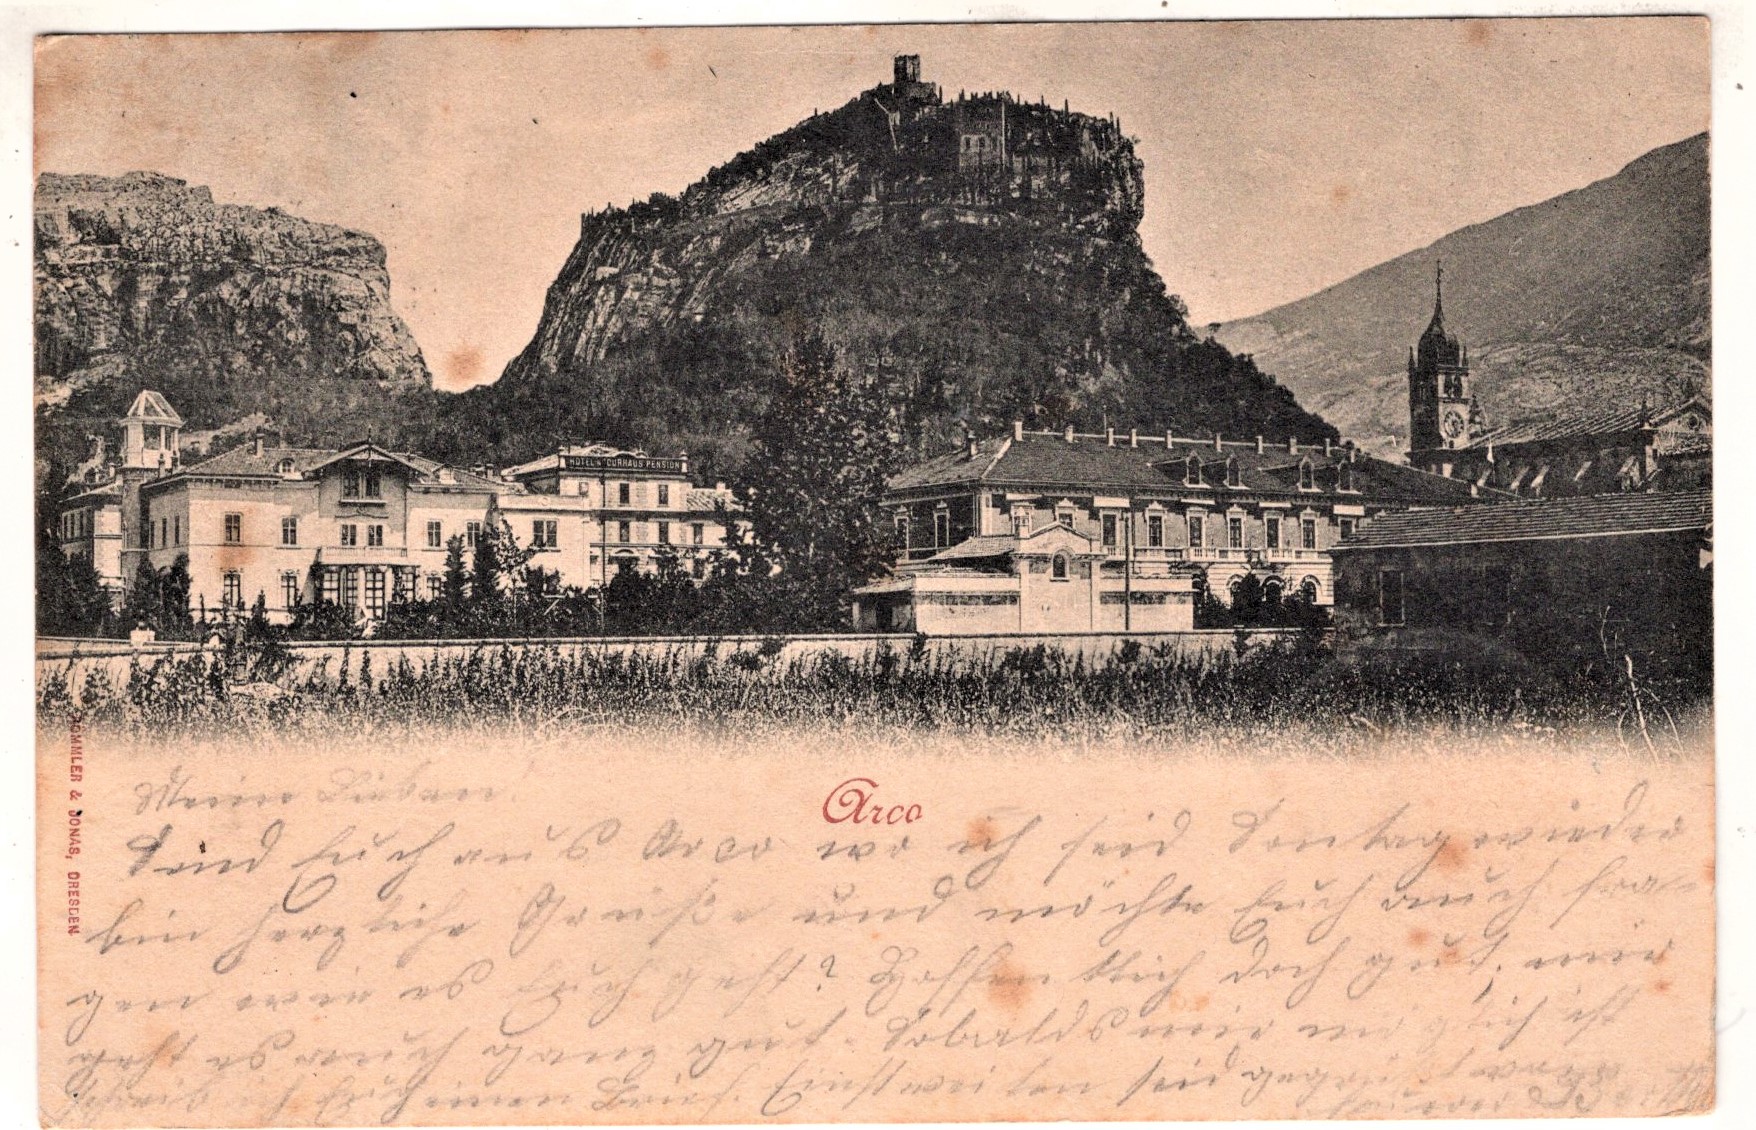 HOTEL & CURHAUS PENSION
Arco
RÖMMLER & JONAS, DRESDEN.
Meine Lieben
Send Euch aus Arco wo ich seid Sontag wieder
bin herzliche Grüße und möchte Euch auch fra-
gen wie es Euch geht? Hoffentlich doch gut, mir
geht es auch ganz gut. Sobald mir möglich ist
schreib ich Euch einen Brief. Einstweilen seid gegrüßt